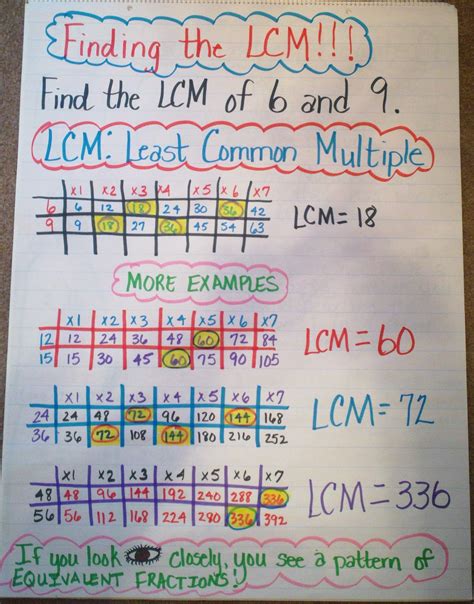 Finding the LCM!!!
Find the LCM of 6 and 9.
LCM: Least Common Multiple
x1 x2 x3 x4 x5 x6 x7
6 6 12 18 24 30 36 42
9 9 18 27 36 45 54 63
LCM=18
MORE EXAMPLES
x1 x2 x3 x4 x5 x6 x7
12 12 24 36 48 60 72 84
15 15 30 45 60 75 90 105
LCM=60
x1 x2 x3 x4 x5 x6 x7
24 24 48 72 96 120 144 168
36 36 72 108 144 180 216 252
LCM=72
x1 x2 x3 x4 x5 x6 x7
48 48 96 144 192 240 288 336
56 56 112 168 224 280 336 392
LCM=336
If you look closely, you see a pattern of
EQUIVALENT FRACTIONS!